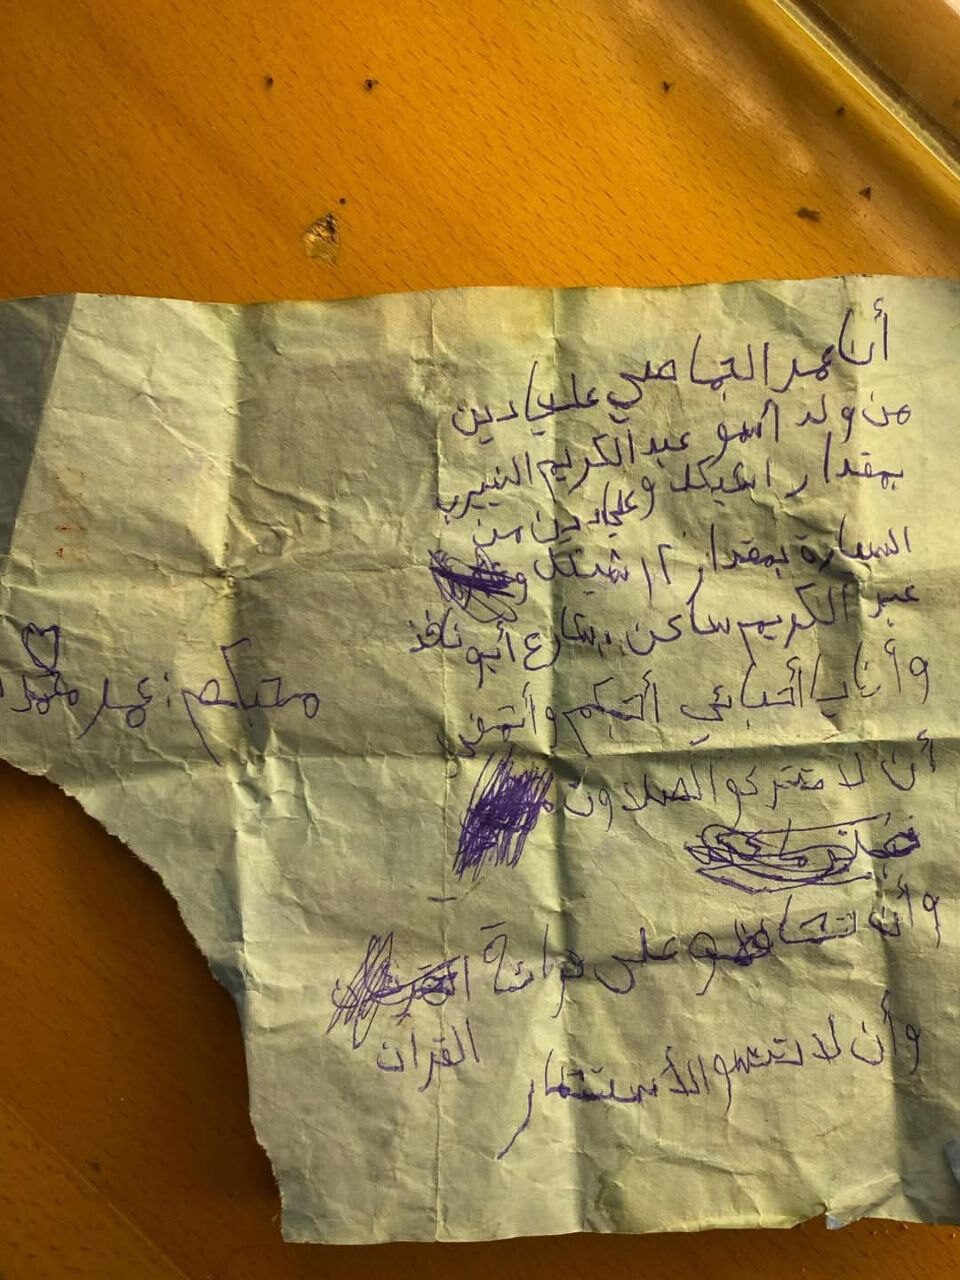 أنا عمر الجماصي علي دين
من ولد اسمو عبد الكريم النيرب
بمقدار 1 شيكل وعلي دين من
السيارة بمقدار ٢ شيكل و
عبد الكريم ساكن بشارع أبو نافذ
وأنا يا أحبابي أحبكم وأتمنى
أن لا تتركو الصلاة
وأن تحافظو على قرائة
القران
وأن لا تنسو الأستغفار
محبكم: عمر محمد